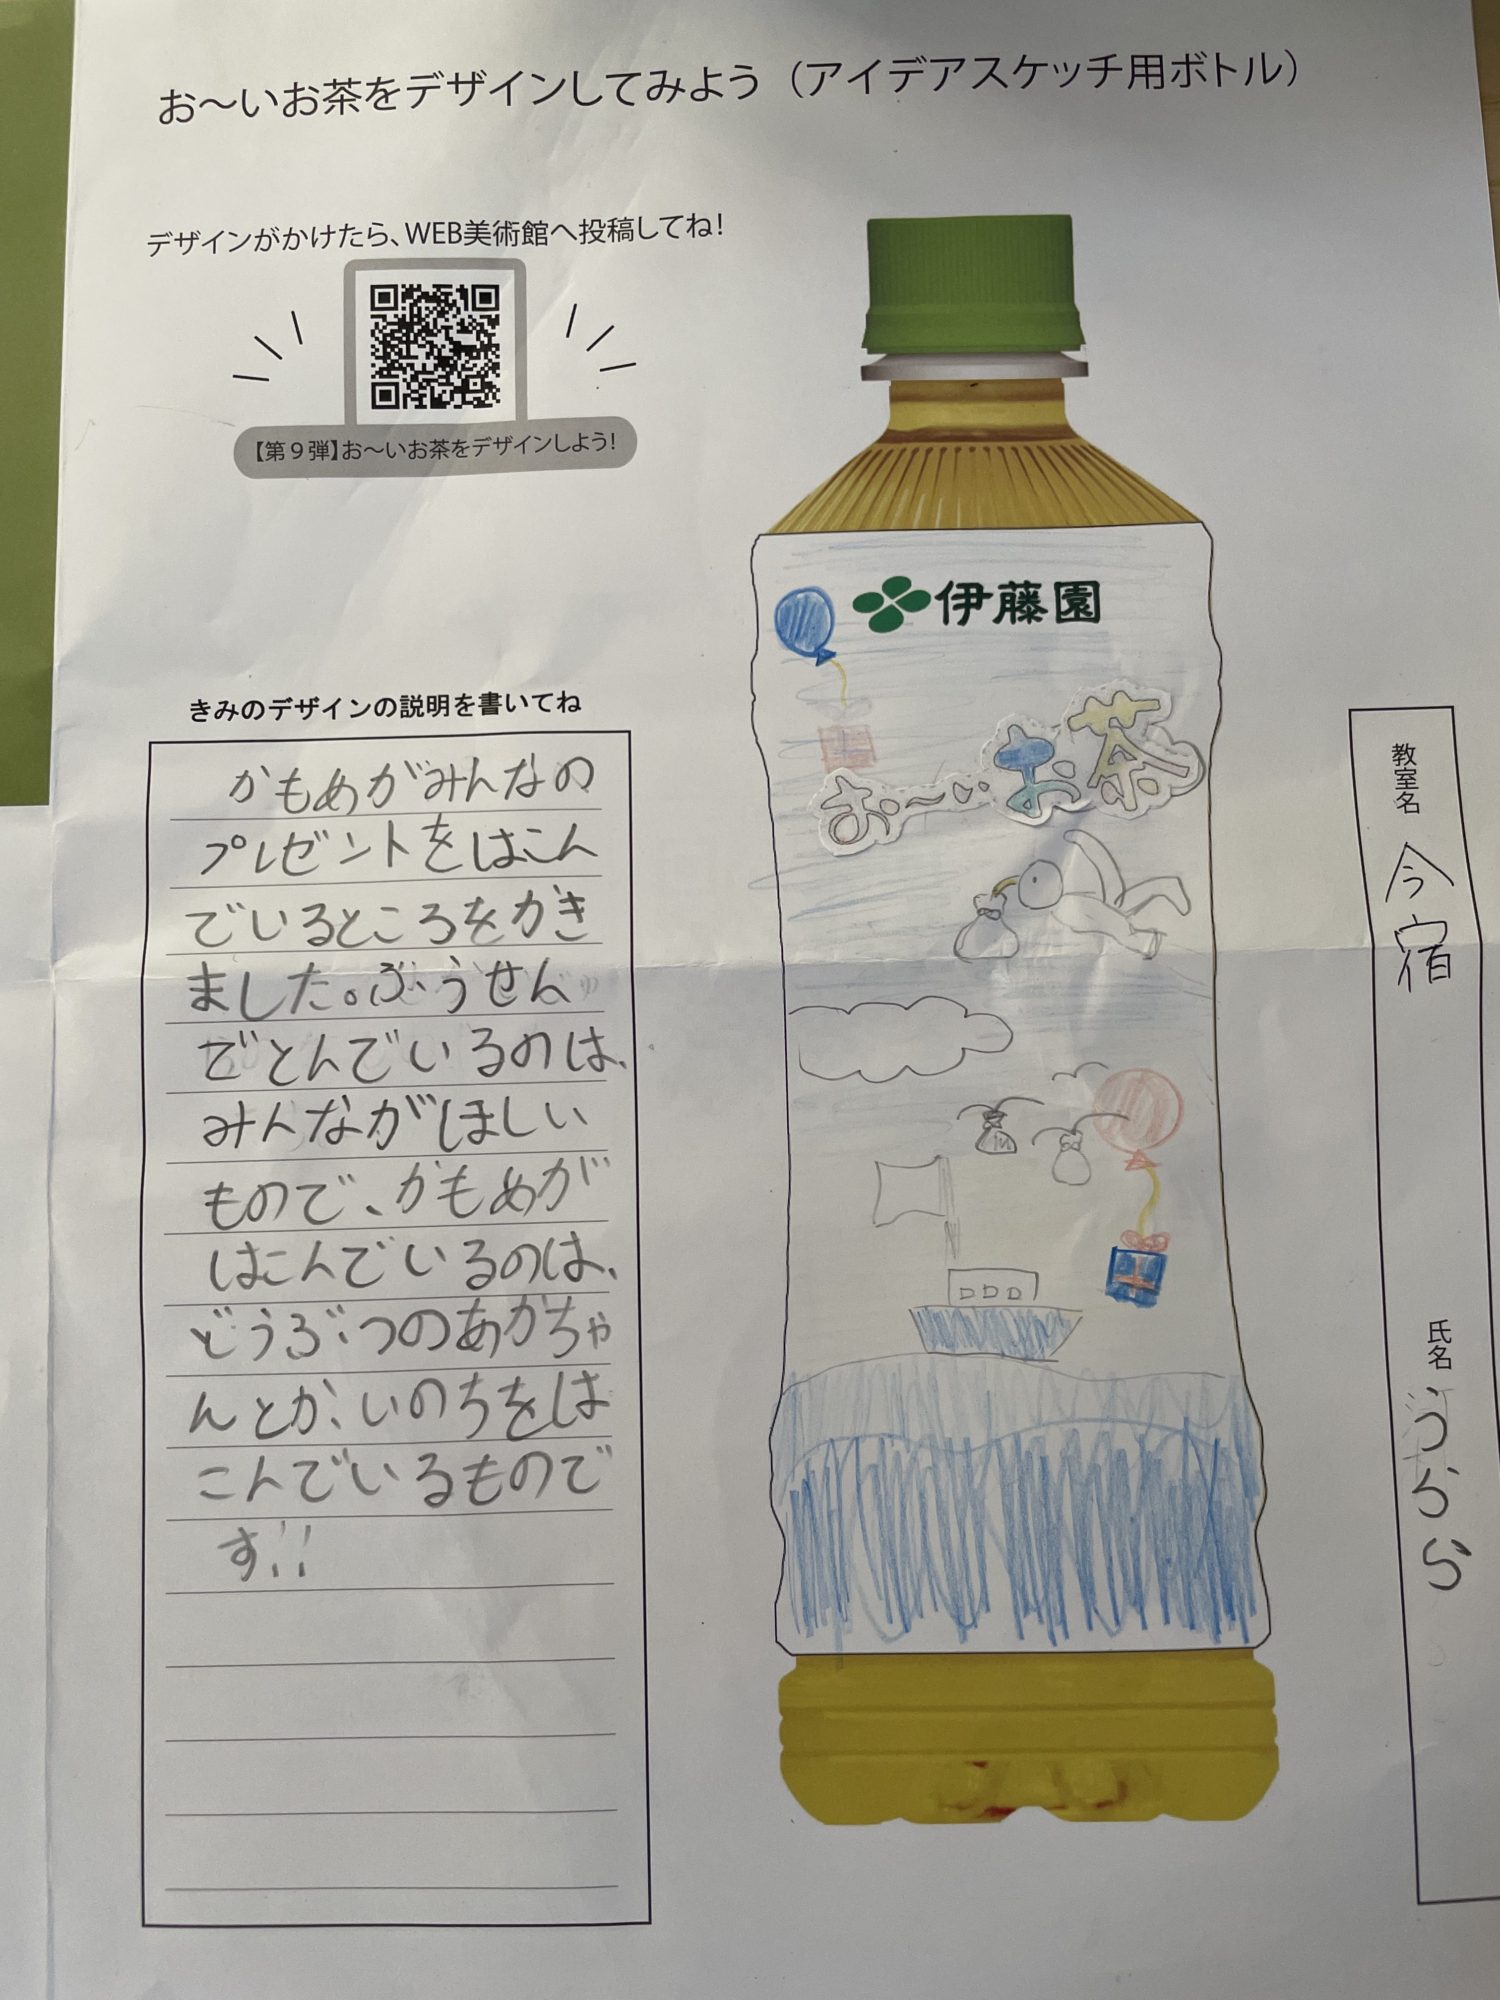 お～いお茶をデザインしてみよう（アイデアスケッチ用ボトル）
デザインがかけたら、WEB美術館へ投稿してね！
【第９弾】お～いお茶をデザインしよう！
きみのデザインの説明を書いてね
かもめがみんなの
プレゼントをはこん
でいるところをかき
ました。ぶうせん
でとんでいるのは、
みんながほしい
もので、かもめが
はこんでいるのは、
どうぶつのあかちゃ
んとか、いのちをは
こんでいるもので
す!!
伊藤園
お～いお茶
教室名
今宿
氏名
うらら